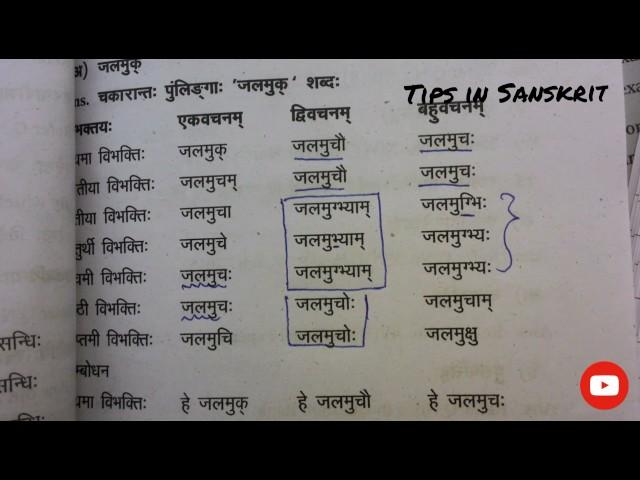 अ) जलमुक्
ns. चकारान्तः पुंलिङ्गाः 'जलमुक्' शब्दः
Tips in Sanskrit
भक्तयः एकवचनम् द्विवचनम् बहुवचनम्
थमा विभक्तिः जलमुक् जलमुचौ जलमुचः
तीया विभक्तिः जलमुचम् जलमुचौ जलमुचः
तीया विभक्तिः जलमुचा जलमुग्भ्याम् जलमुग्भिः
तुर्थी विभक्तिः जलमुचे जलमुभ्याम् जलमुग्भ्यः
चमी विभक्तिः जलमुचः जलमुग्भ्याम् जलमुग्भ्यः
ठी विभक्तिः जलमुचः जलमुचोः जलमुचाम्
प्तमी विभक्तिः जलमुचि जलमुचोः जलमुक्षु
म्बोधन
थमा विभक्तिः हे जलमुक् हे जलमुचौ हे जलमुचः
सन्धिः
सन्धिः